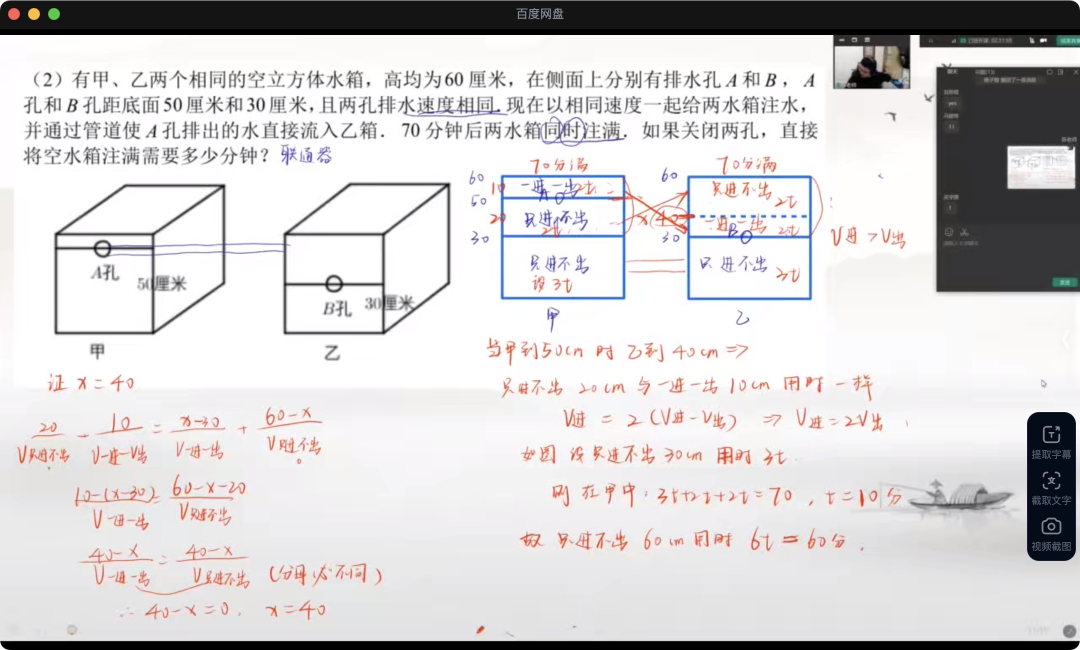 百度网盘
（2）有甲、乙两个相同的空立方体水箱，高均为60厘米，在侧面上分别有排水孔A和B，A
孔和B孔距底面50厘米和30厘米，且两孔排水速度相同．现在以相同速度一起给两水箱注水，
并通过管道使A孔排出的水直接流入乙箱．70分钟后两水箱同时注满．如果关闭两孔，直接
将空水箱注满需要多少分钟？ 联通器
A孔
50厘米
甲
B孔
30厘米
乙
70分满
60
10
一进一出 2t
A
50
20
只进不出
2t
30
只进不出
设3t
甲
70分满
60
只进不出
2t
x(40)
一进一出 2t
30
B
只进不出
3t
乙
V进>V出
当甲到50cm时 乙到40cm⇒
只进不出 20cm 与一进一出 10cm 用时一样
V进 = 2(V进-V出) ⇒ V进=2V出
如图 设只进不出30cm 用时 3t.
则在甲中：3t+2t+2t=70，t=10分
故 只进不出 60cm 用时 6t = 60分.
证 x=40
20 10 = x-30 + 60-x
V只进不出 V一进一出 V一进一出 V只进不出
10-(x-30) = 60-x-20
V一进一出 V只进不出
40-x = 40-x
V一进一出 V只进不出 (分母必不同)
∴ 40-x=0. x=40
提取字幕
截取文字
视频截图